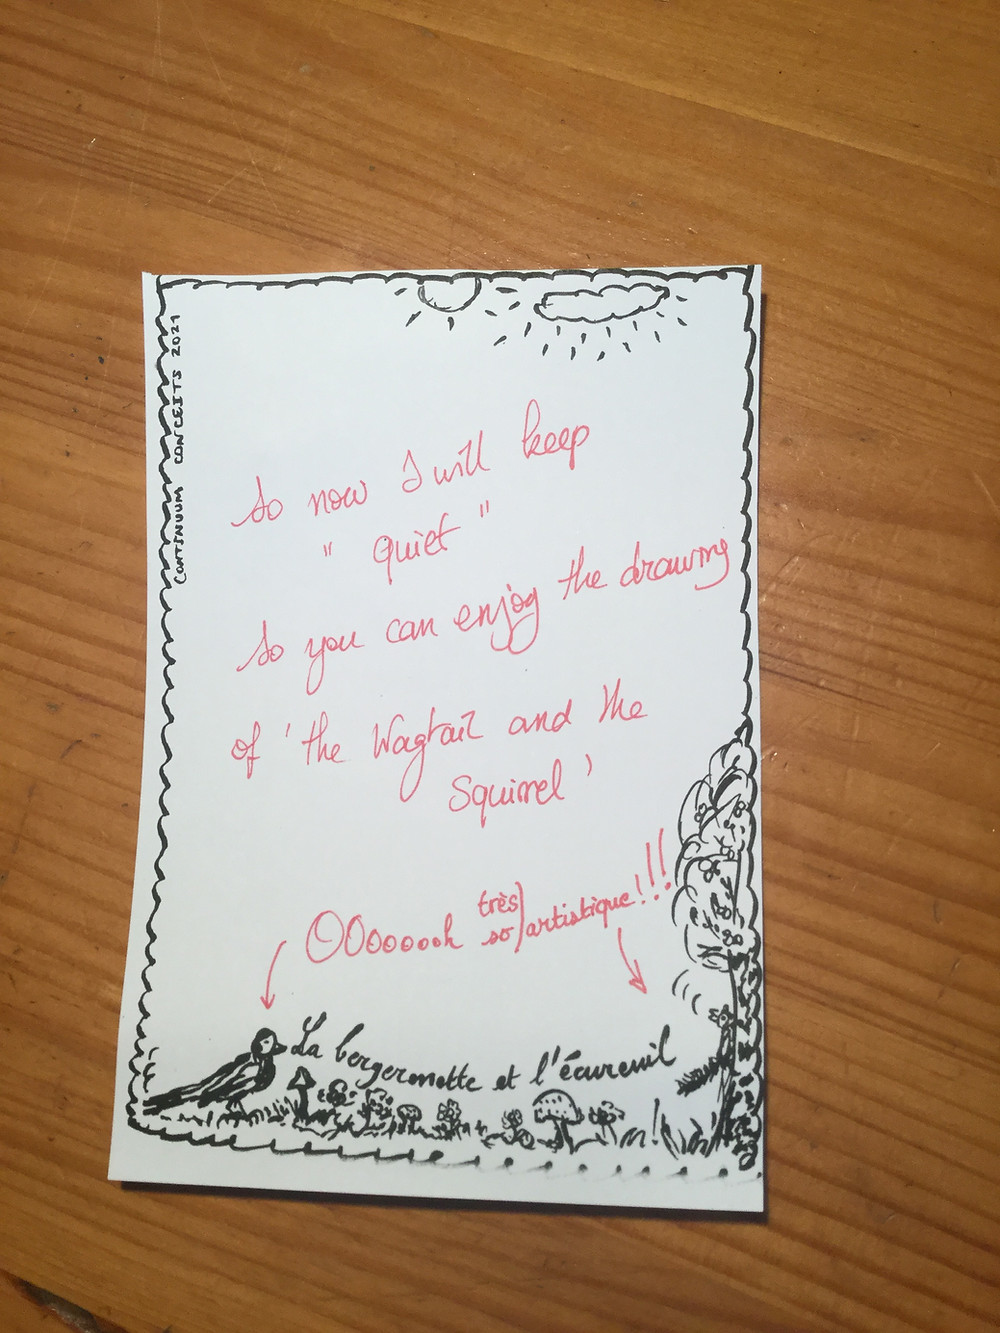 CONTINUUM CONCEITS 2021
So now I will keep
" quiet "
So you can enjoy the drawing
of 'the Wagtail and the
Squirrel'
OOoooooh très
so) artistique!!!
La bergeronette et l'écureuil